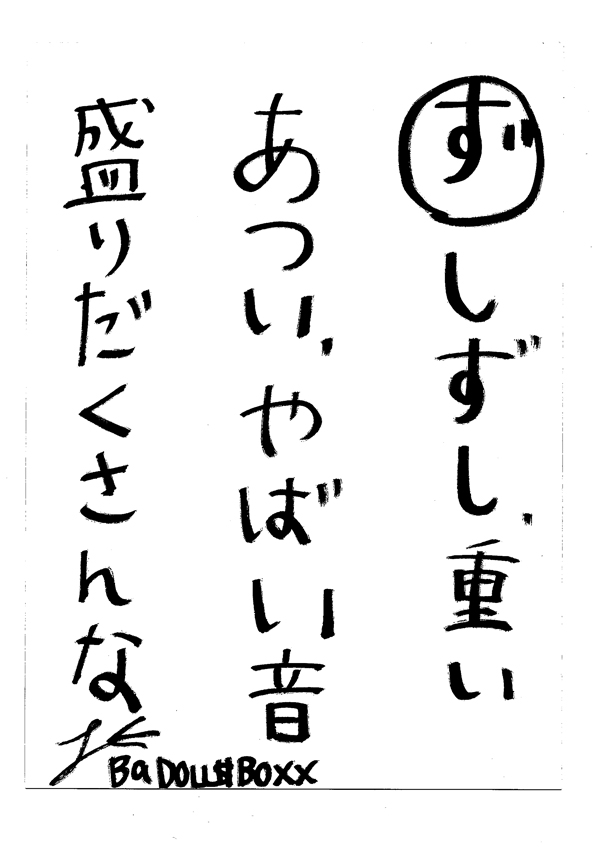 ずしずし、重い
あつい、やばい音
盛りだくさんな
BaDoLL$Boxx